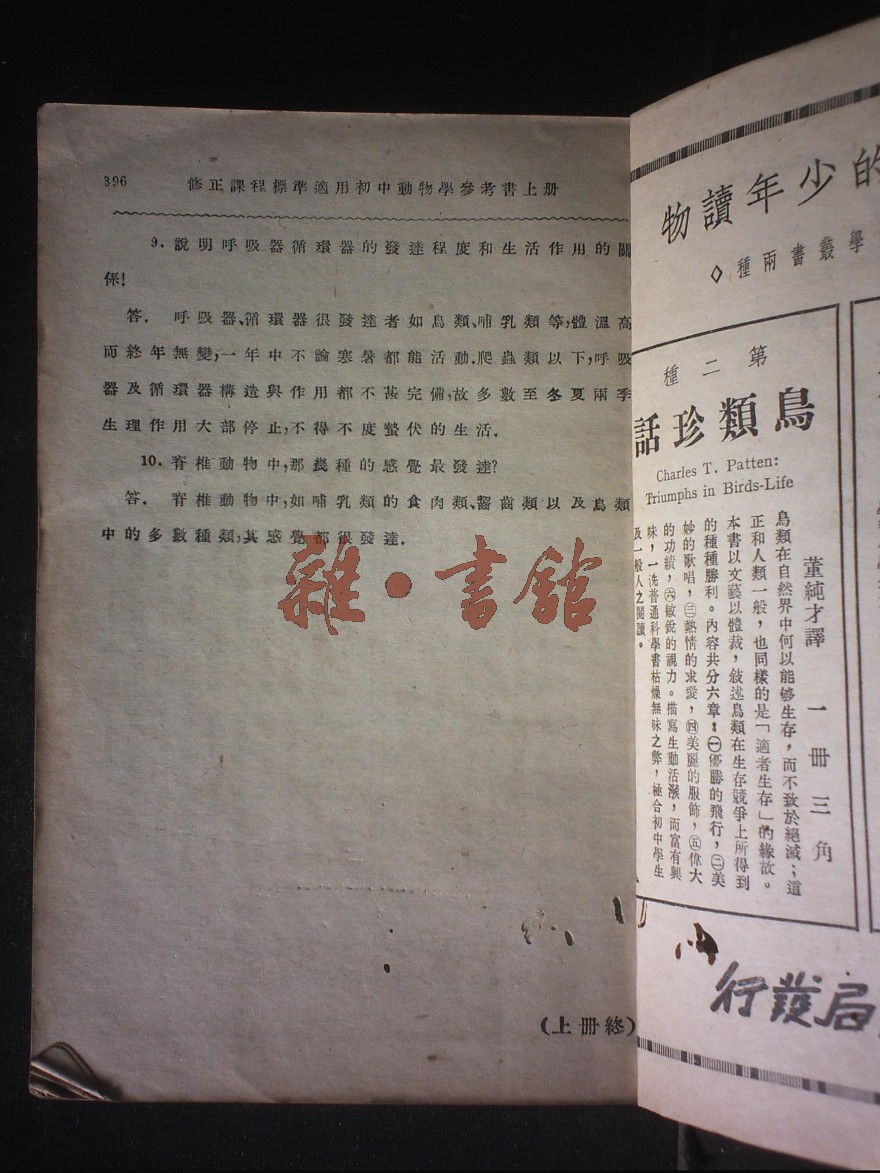 396 修正課程標準適用初中動物學參考書上册
9. 說明呼吸器循環器的發達程度和生活作用的關
係!
答. 呼吸器、循環器很發達者如鳥類、哺乳類等,體溫高
而終年無變,一年中不論寒暑都能活動.爬蟲類以下,呼吸
器及循環器構造與作用都不甚完備,故多數至冬夏兩季
生理作用大部停止,不得不度蟄伏的生活.
10. 脊椎動物中,那幾種的感覺最發達?
答. 脊椎動物中,如哺乳類的食肉類、齧齒類以及鳥類
中的多數種類,其感覺都很發達.
雜·書館
(上册終)
的少年讀物
學叢書兩種◇
第二種
鳥類珍話
Charles T. Patten:
Triumphs in Birds-Life
董純才譯 一册三角
鳥類在自然界中何以能够生存,而不致於絕滅;這
正和人類一般,也同樣的是「適者生存」的緣故。
本書以文藝以體裁,敍述鳥類在生存競爭上所得到
的種種勝利。內容共分六章:㊀優勝的飛行,㊁美
妙的歌唱,㊂熱情的求愛,㊃美麗的服飾,㊄偉大
的功績,㊅敏銳的視力。描寫生動活潑,而富有興
味,一洗普通科學書枯燥無味之弊,極合初中學生
及一般人之閱讀。
局發行